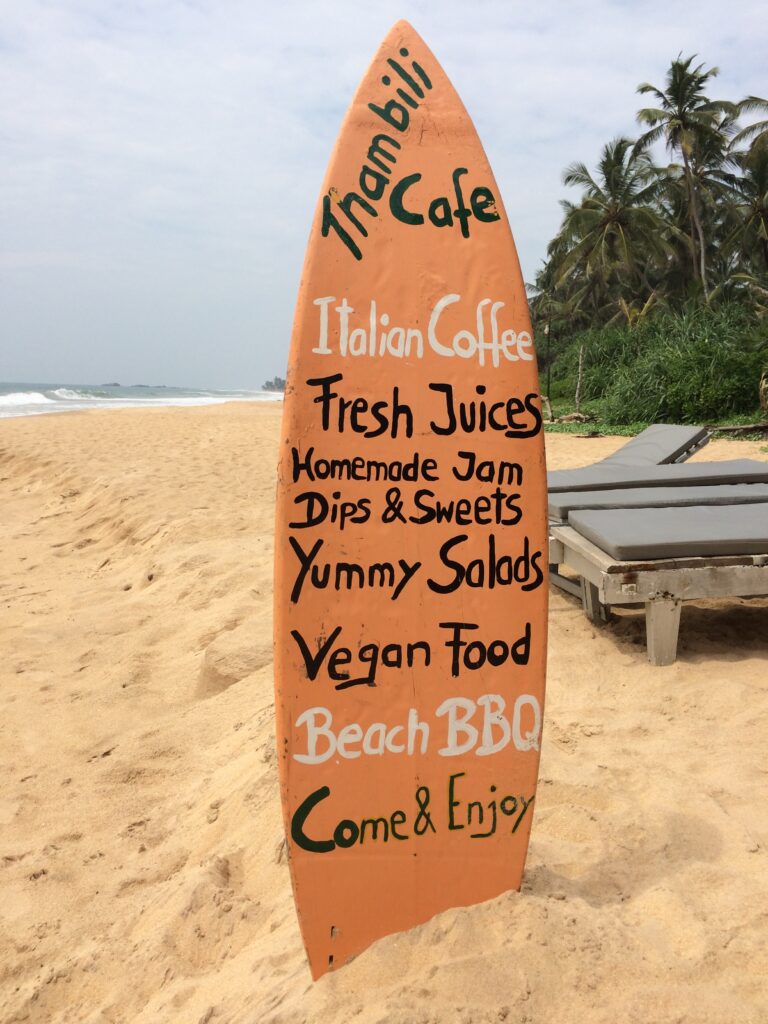 Thambili
Cafe
Italian Coffee
Fresh Juices
Homemade Jam
Dips & Sweets
Yummy Salads
Vegan Food
Beach BBQ
Come & Enjoy